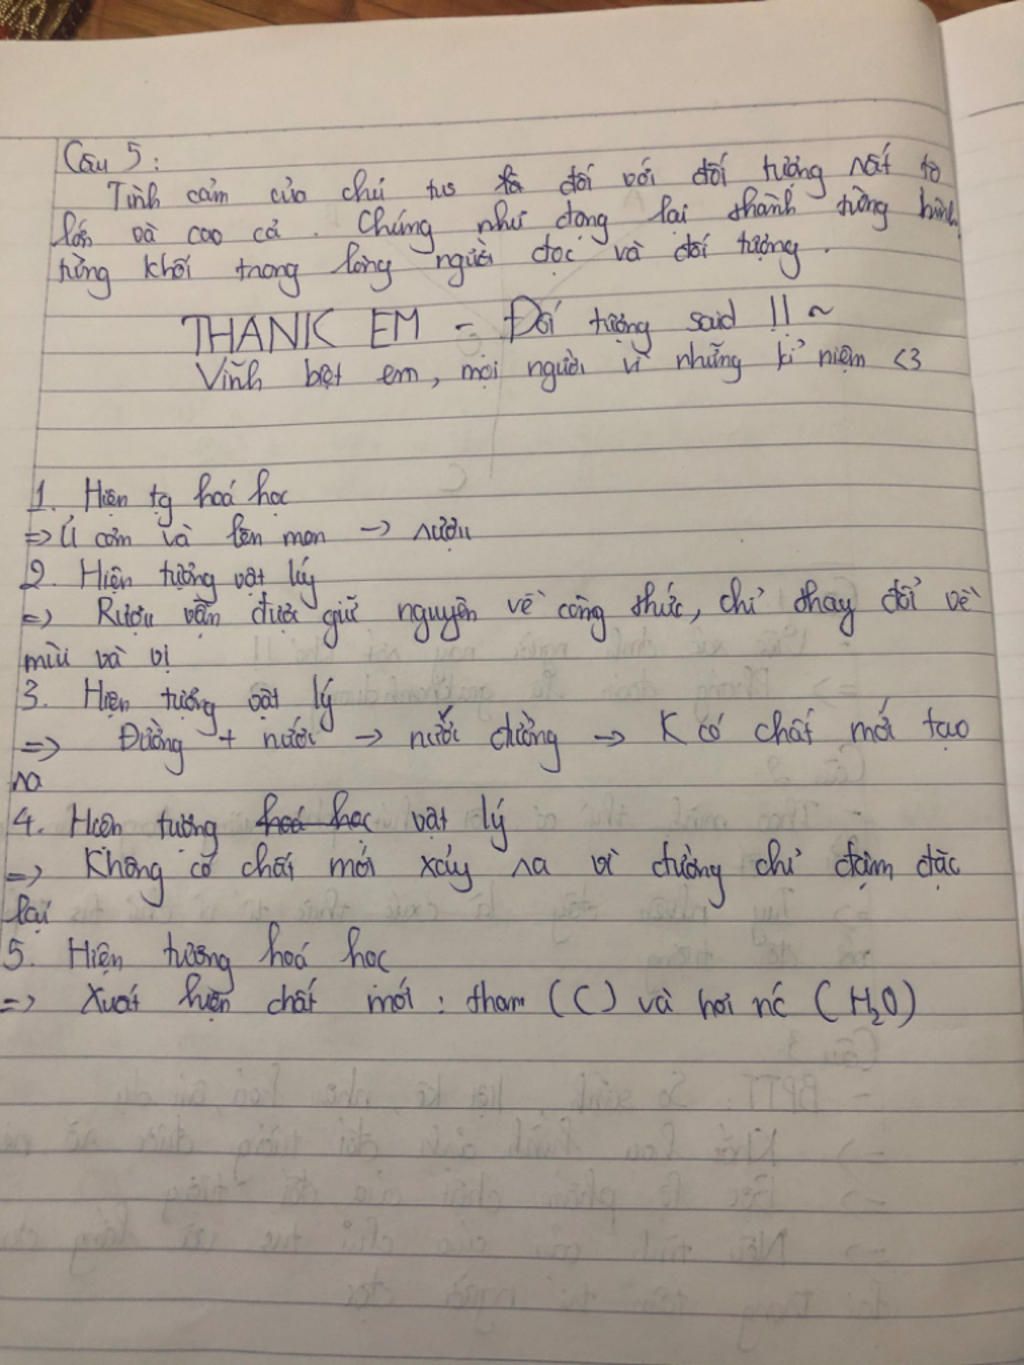 Câu 5:
Tình cảm của chú tus đối với đối tượng rất to
lớn và cao cả. Chúng như đọng lại thành từng hình
từng khối trong lòng người đọc và đối tượng.
THANK EM - Đối tượng said !! ~
Vĩnh biệt em, mọi người vì những kỉ niệm <3
1. Hiện tg hoá học
=> Ủ cơm và lên men -> rượu
2. Hiện tượng vật lý
=> Rượu vẫn được giữ nguyên về công thức, chỉ thay đổi về
mùi và vị
3. Hiện tượng vật lý
=> Đường + nước -> nước đường -> K có chất mới tạo
ra
4. Hiện tượng hoá học vật lý
=> Không có chất mới xảy ra vì đường chỉ đậm đặc
lại
5. Hiện tượng hoá học
=> Xuất hiện chất mới: tham (C) và hơi nc (H₂O)